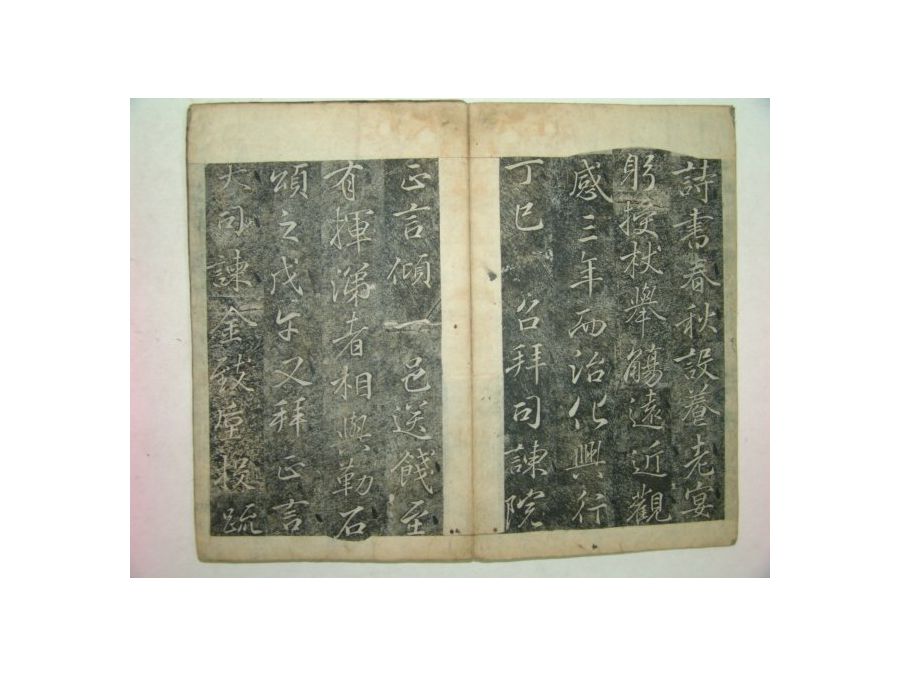 詩書春秋設養老宴
躬授杖舉觴遠近觀
感三年而治化興行
丁巳 召拜司諫院
正言傾一邑送餞至
有揮涕者相與勒石
頌之戊午又拜正言
大司諫金致垕投疏